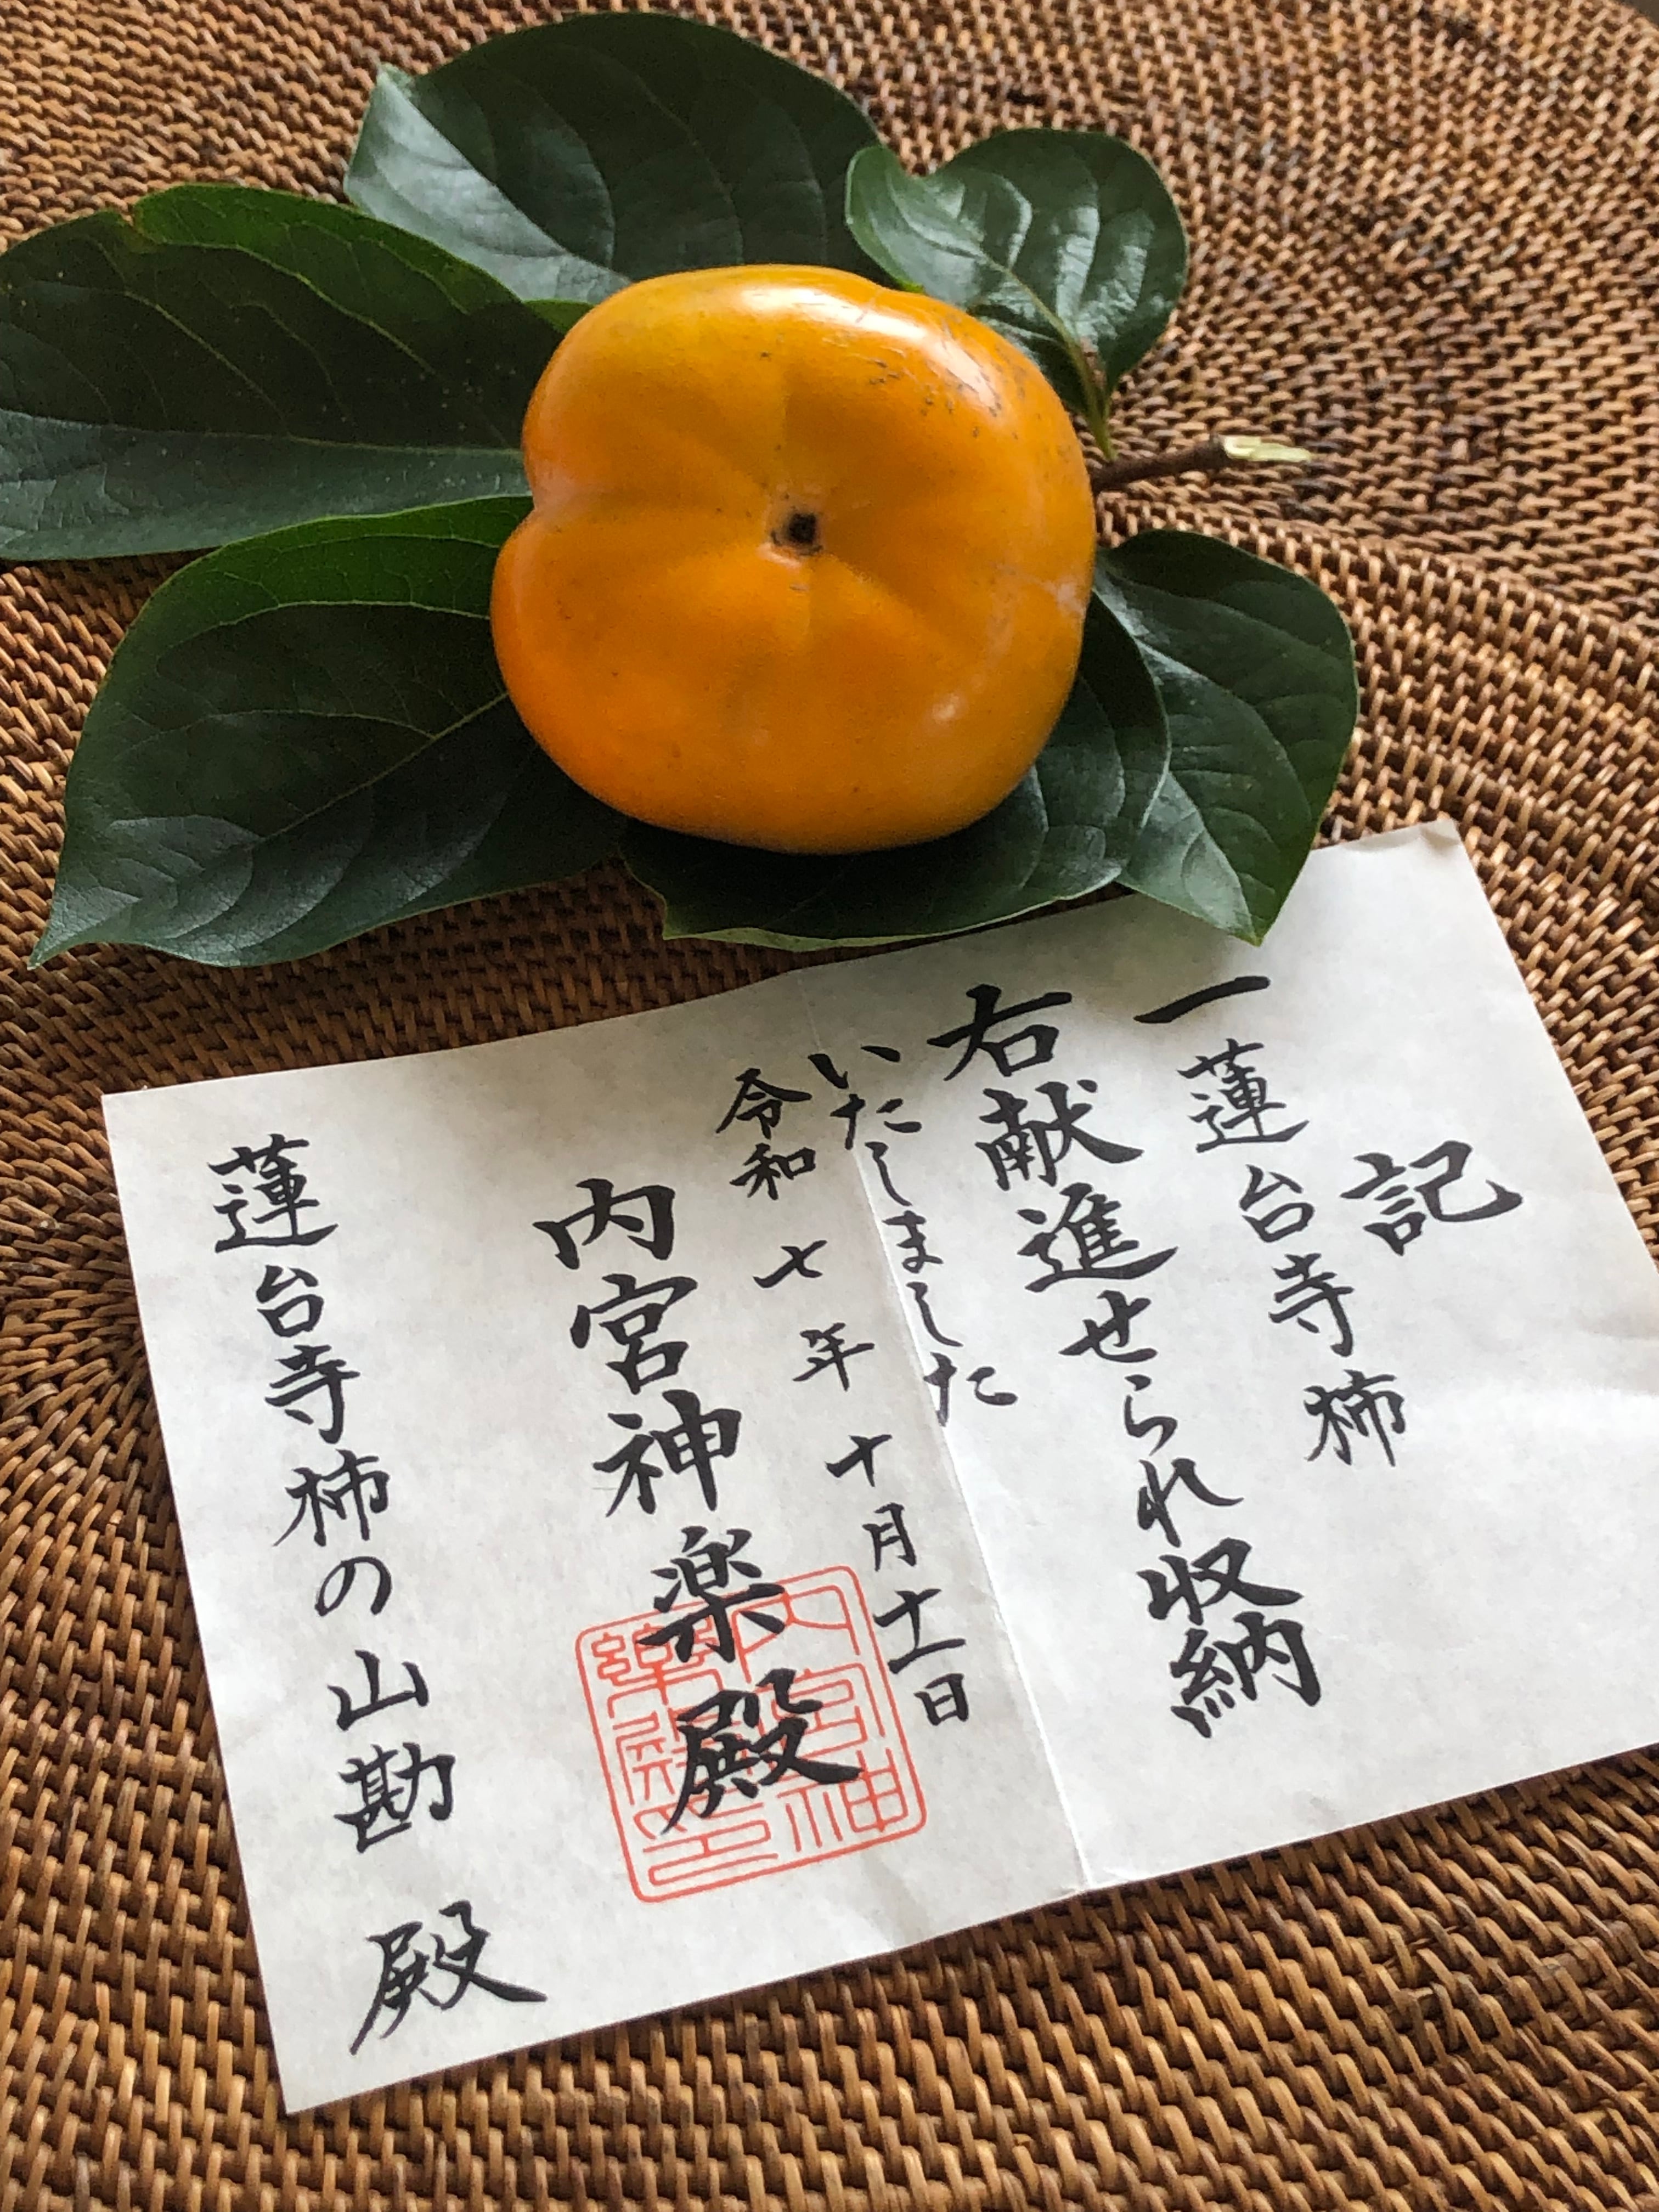 記
一 蓮台寺柿
右献進せられ収納
いたしました
令和七年十月十一日
内宮神楽殿
蓮台寺柿の山勘 殿
内宮神
楽殿之印